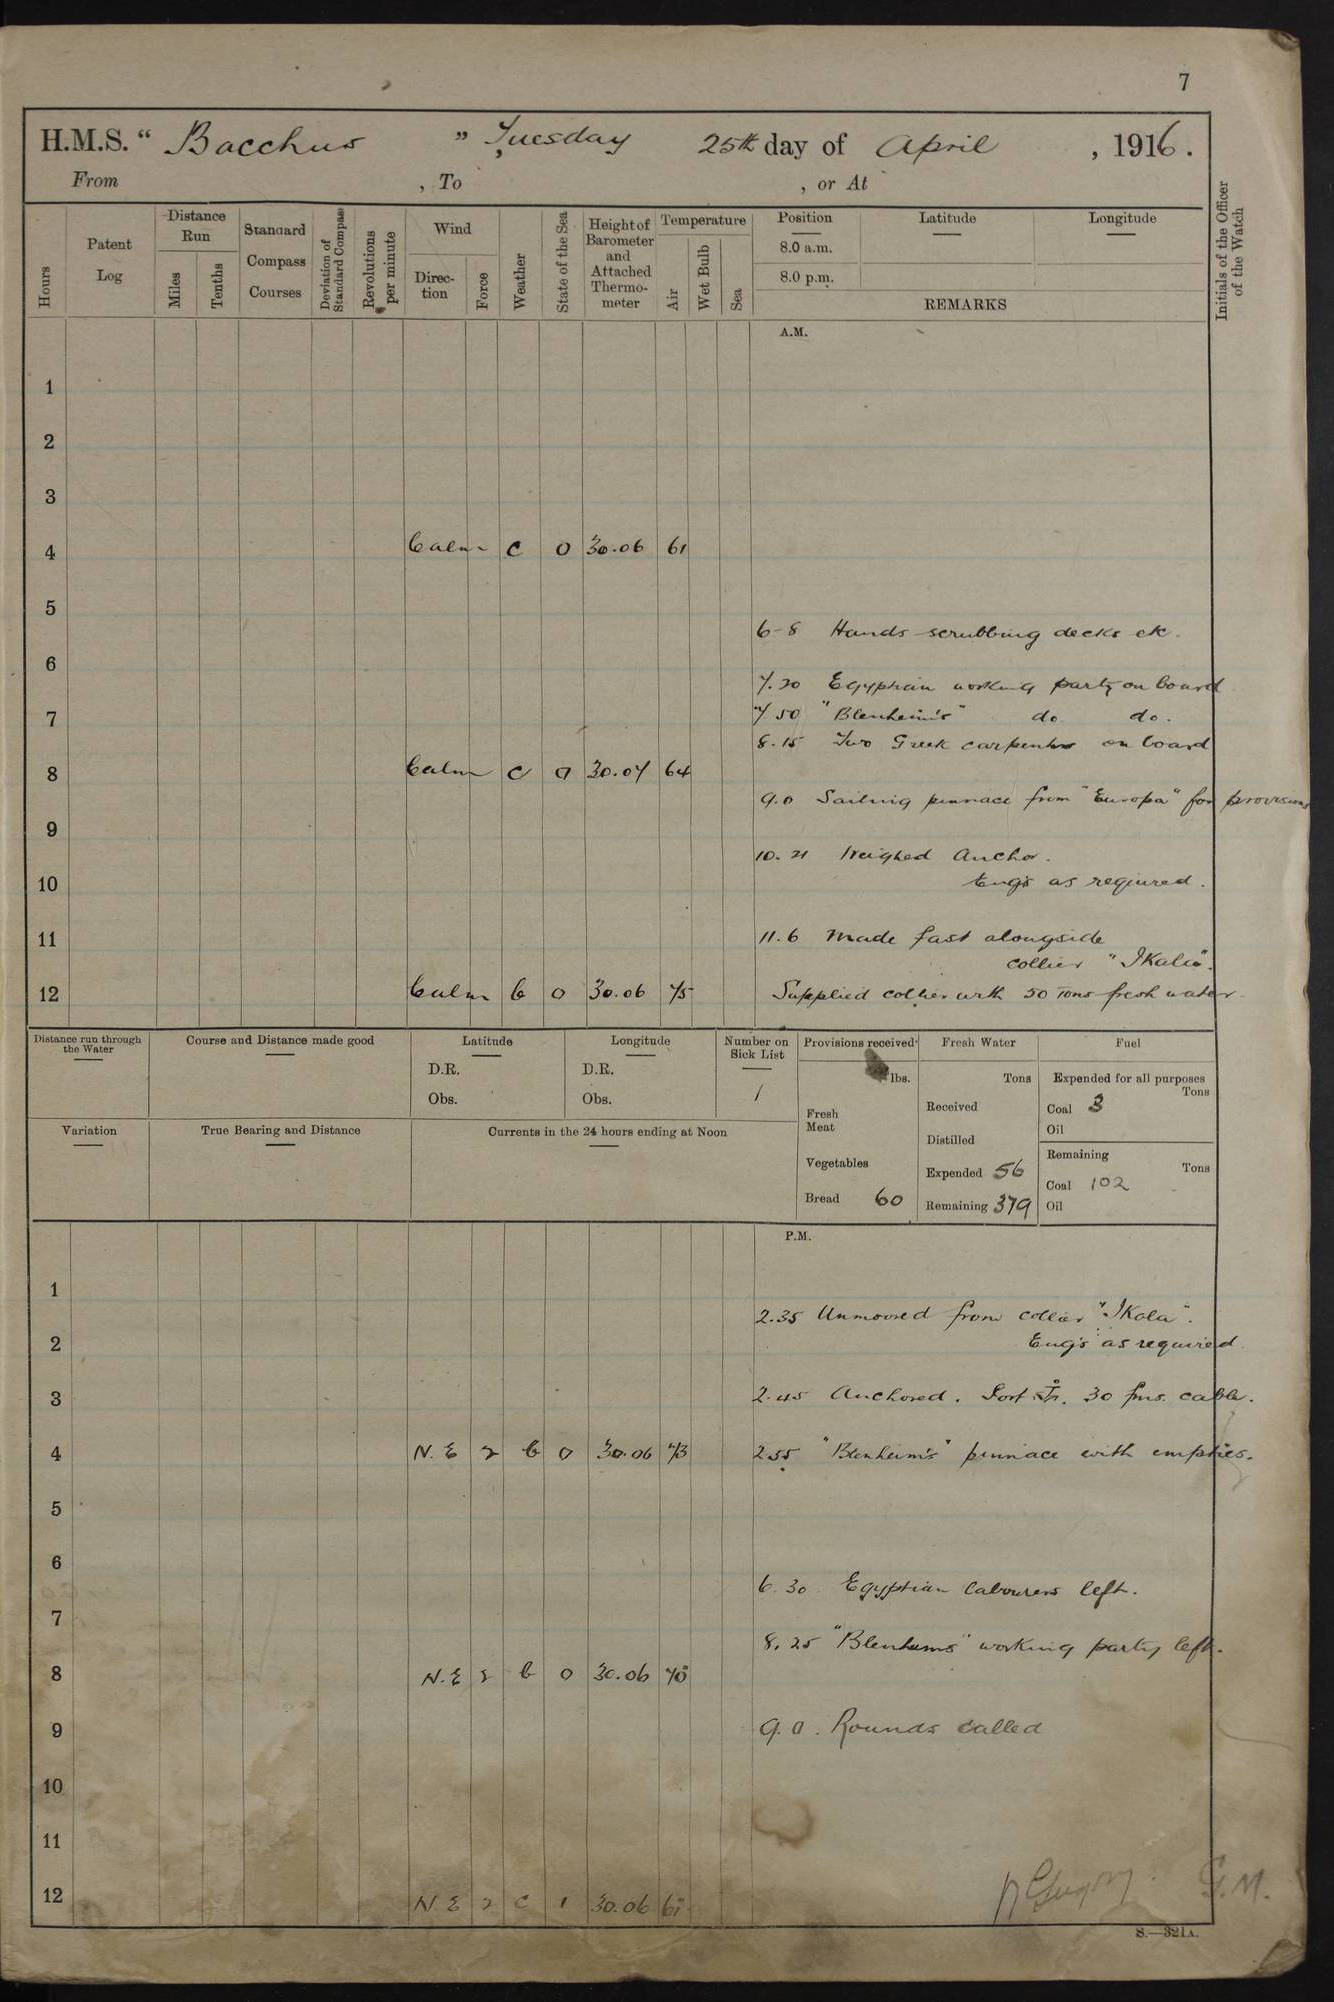 7
H.M.S. " Bacchus " Tuesday 25th day of April , 1916.
From , To , or At
Hours
Patent Log
Distance Run
Miles
Tenths
Standard Compass Courses
Deviation of Standard Compass
Revolutions per minute
Wind
Direc-tion
Force
Weather
State of the Sea
Height of Barometer and Attached Thermo-meter
Temperature
Air
Wet Bulb
Sea
Position
8.0 a.m.
8.0 p.m.
Latitude
Longitude
REMARKS
Initials of the Officer of the Watch
A.M.
1
2
3
4 Calm c 0 30.06 61
5
6-8 Hands scrubbing decks etc.
6
7.20 Egyptian working party on board
7
7.50 "Blenheim's" do do.
8.15 Two Greek carpenters on board
8 Calm c 0 30.07 64
9.0 Sailing pinnace from "Europa" for provisions
9
10.21 Weighed Anchor.
10 Eng's as required.
11 11.6 Made fast alongside
collier "Ikala".
12 Calm b 0 30.06 75 Supplied collier with 50 Tons fresh water
Distance run through the Water
Course and Distance made good
Latitude
D.R.
Obs.
Longitude
D.R.
Obs.
Number on Sick List
1
Provisions received
lbs.
Fresh Meat
Vegetables
Bread 60
Fresh Water
Tons
Received
Distilled
Expended 56
Remaining 379
Fuel
Expended for all purposes
Tons
Coal 3
Oil
Remaining
Tons
Coal 102
Oil
Variation
True Bearing and Distance
Currents in the 24 hours ending at Noon
P.M.
1
2.35 Unmoored from collier "Ikala".
2 Eng's as required
3 2.45 Anchored. Port 30 fms. cable.
4 N.E 2 b 0 30.06 73 2.55 "Blenheim's" pinnace with empties.
5
6
6.30 Egyptian labourers left.
7
8.25 "Blenheims" working party left.
8 N.E 2 b 0 30.06 70
9 9.0. Rounds called
10
11
12 N E 2 c 1 30.06 61
G.M.
S.—321A.